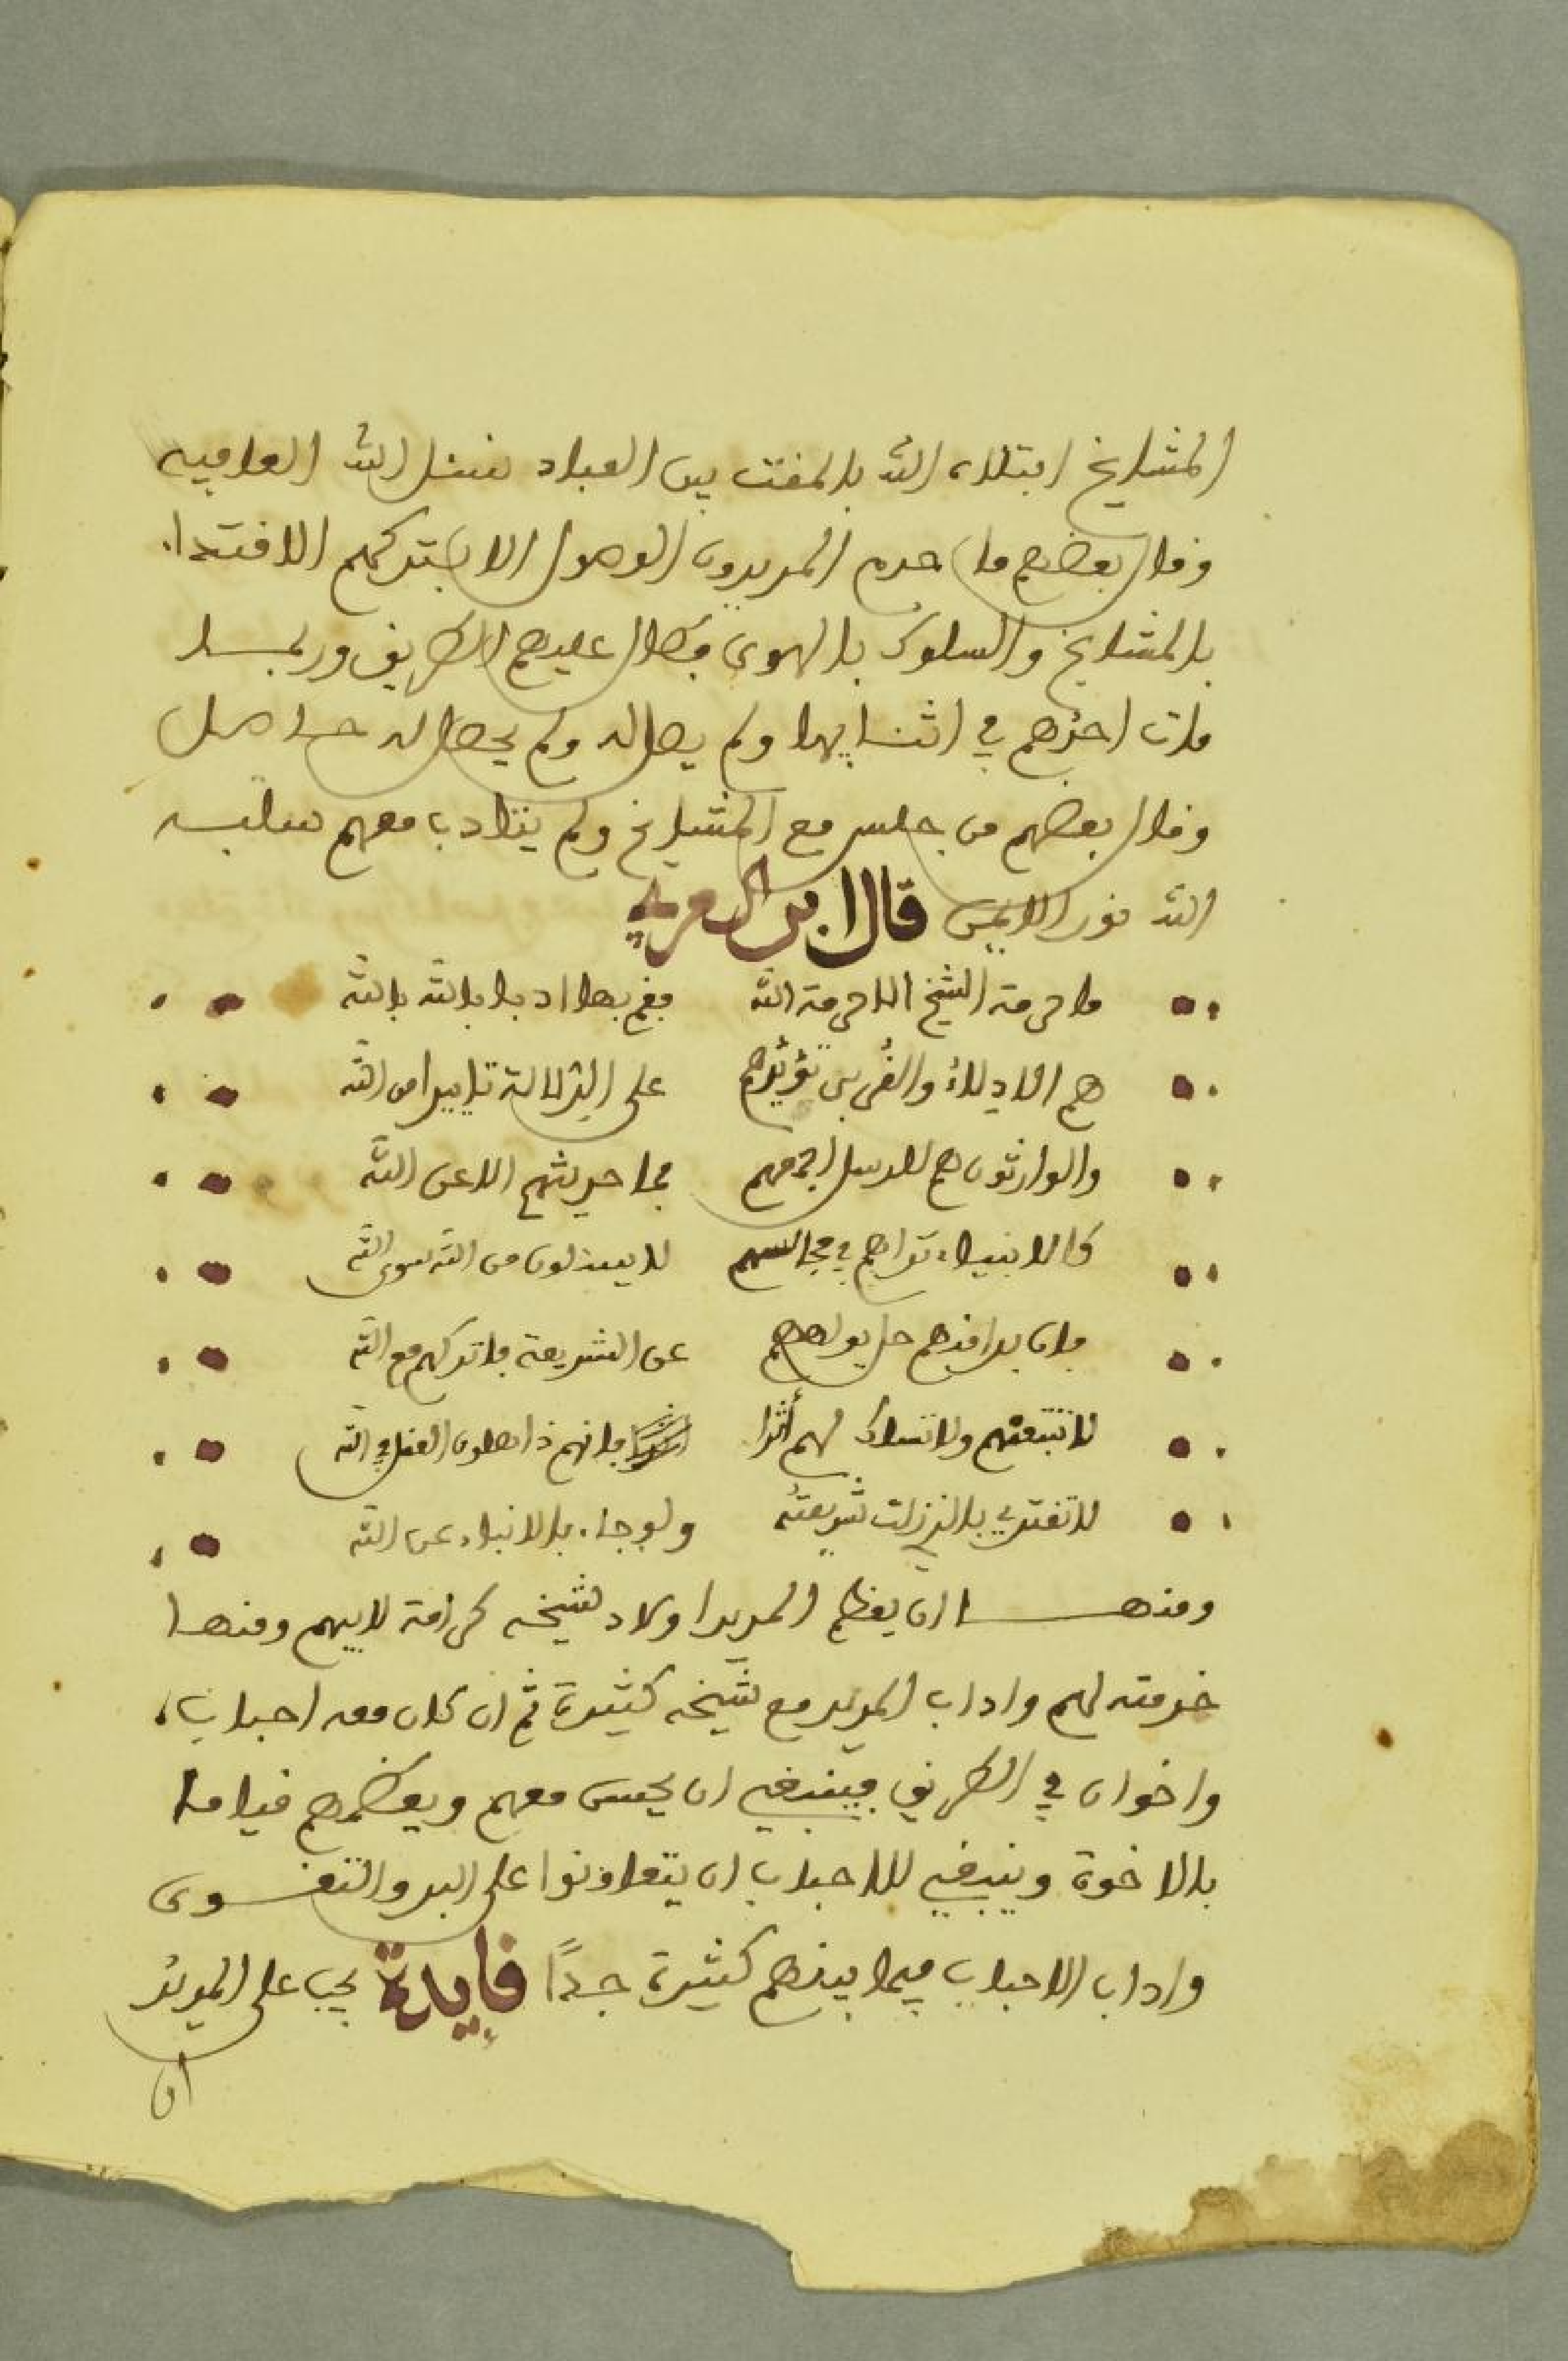 المشايخ ابتلاه الله بالمقت بين العباد نسئل الله العافيه
وقال بعضهم ما حرم المريدون الوصول الا بتركهم الاقتدا
بالمشايخ والسلوك بالهوى فطال عليهم الطريق وربما
مات احدهم في اثنايها ولم يصل له ولم يحصل له حاصل
وقال بعضهم من جلس مع المشايخ ولم يتادب معهم سلبه
الله نور الايمن قال ابن العربي
ما حرمة الشيخ الا حرمة الله فقم بها ادبا بالله بالله
هم الادلاء والقربى تؤيدهم على الدلالة تاييدا من الله
والوارثون هم للرسل اجمعهم فما حديثهم الا عن الله
كالانبياء تراهم في مجالسهم لا يسئلون من الله سوى الله
فان بدا منهم حال يولههم عن الشريعة فاتركهم مع الله
لا تتبعهم ولا تسلك لهم أثرا فانهم ذاهلون العقل في الله
لا تقتدي بالذي زلت شريعته ولو جاء بالانباء عن الله
ومنها ان يعظم المريد اولاد شيخه كرامة لابيهم ومنها
خدمته لهم واداب المريد مع شيخه كثيرة ثم ان كان معه احباب
واخوان في الطريق فينبغي ان يحسن معهم ويعظمهم قياما
بالاخوة وينبغي للاحباب ان يتعاونوا على البر والتقوى
واداب الاحباب فيما بينهم كثيرة جدًا فايدة يجب على المريد
ان